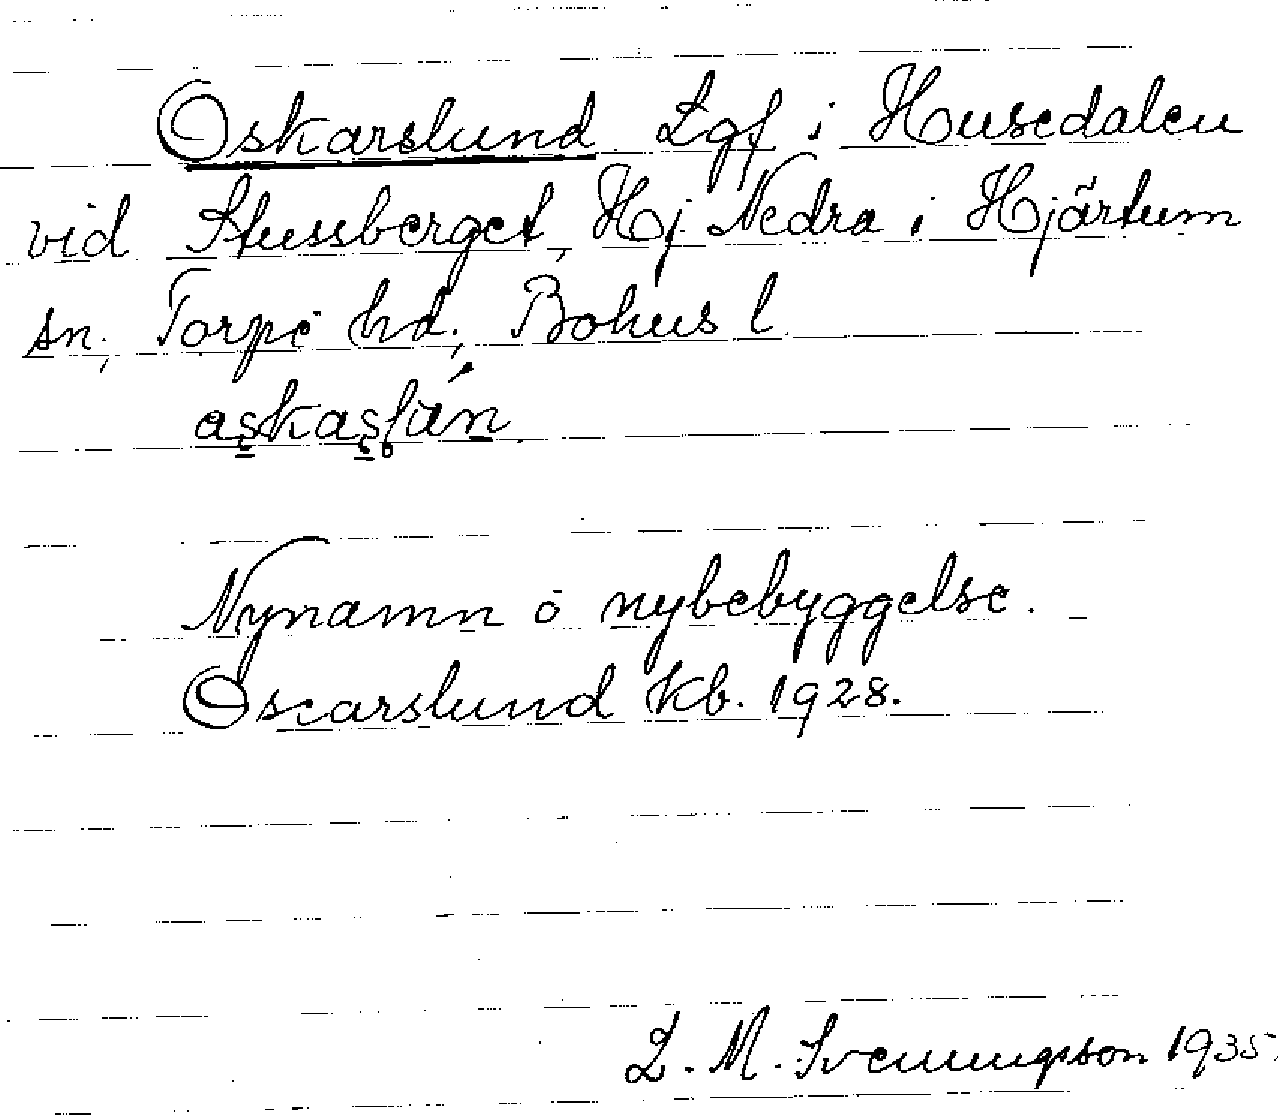 Oskarslund Lgf i Husedalen
vid Stussberget, Hj. Nedra i Hjärtum
sn, Torpe hd, Bohus l
Nynamn o nybebyggelse.
Oscarslund kb. 1928.
L. M. Svenungsson 1935